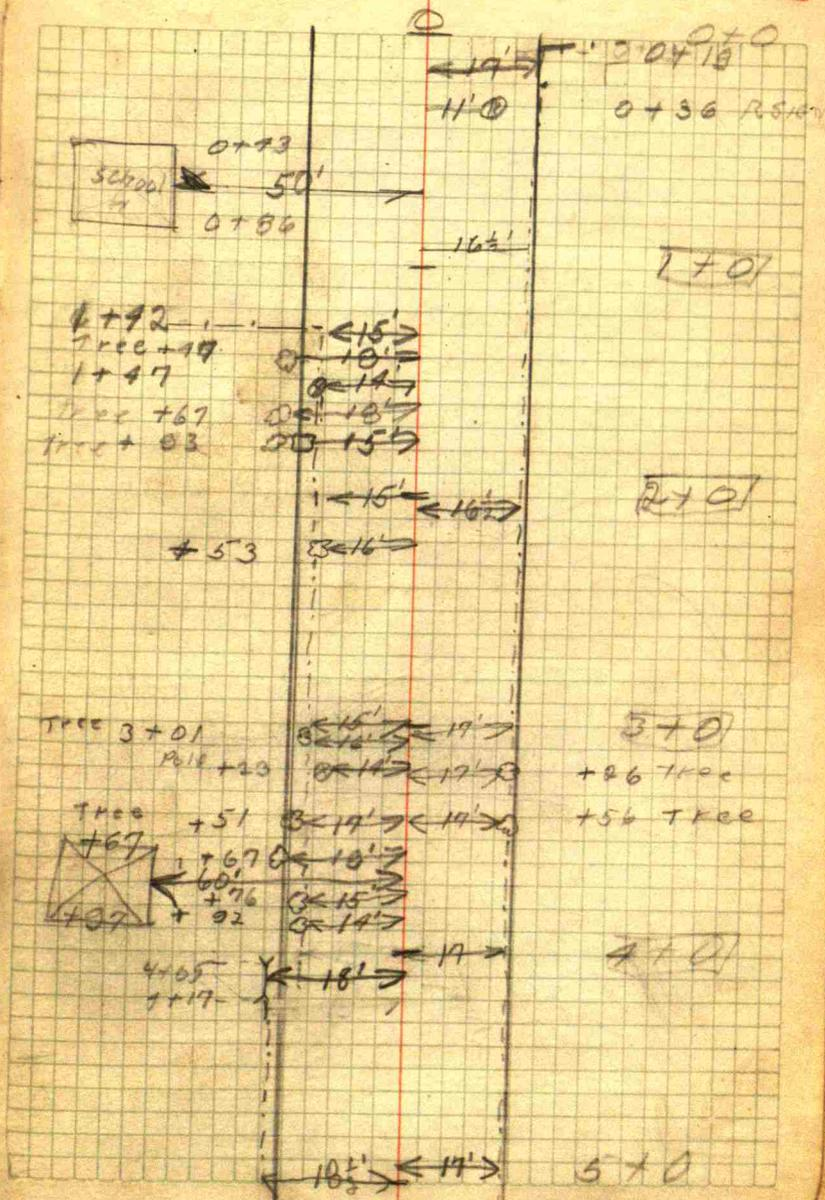 0
0+0
19'
11'
0+36
0+43
School
50'
0+86
16½'
1+0
1+42
15'
Tree +47
18'
1+47
14'
Tree +67
18'
Tree + 83
15'
15'
16½'
2+0
+ 53
16'
15'
17'
3+0
Tree 3+01
16'
Pole +23
14'
17'
+26 Tree
Tree
+51
17'
17'
+56 Tree
+67
+67
18'
60'
+76
15'
+ 92
14'
+97
17
4+0
4+05
18'
4+17
18½'
17'
5+0